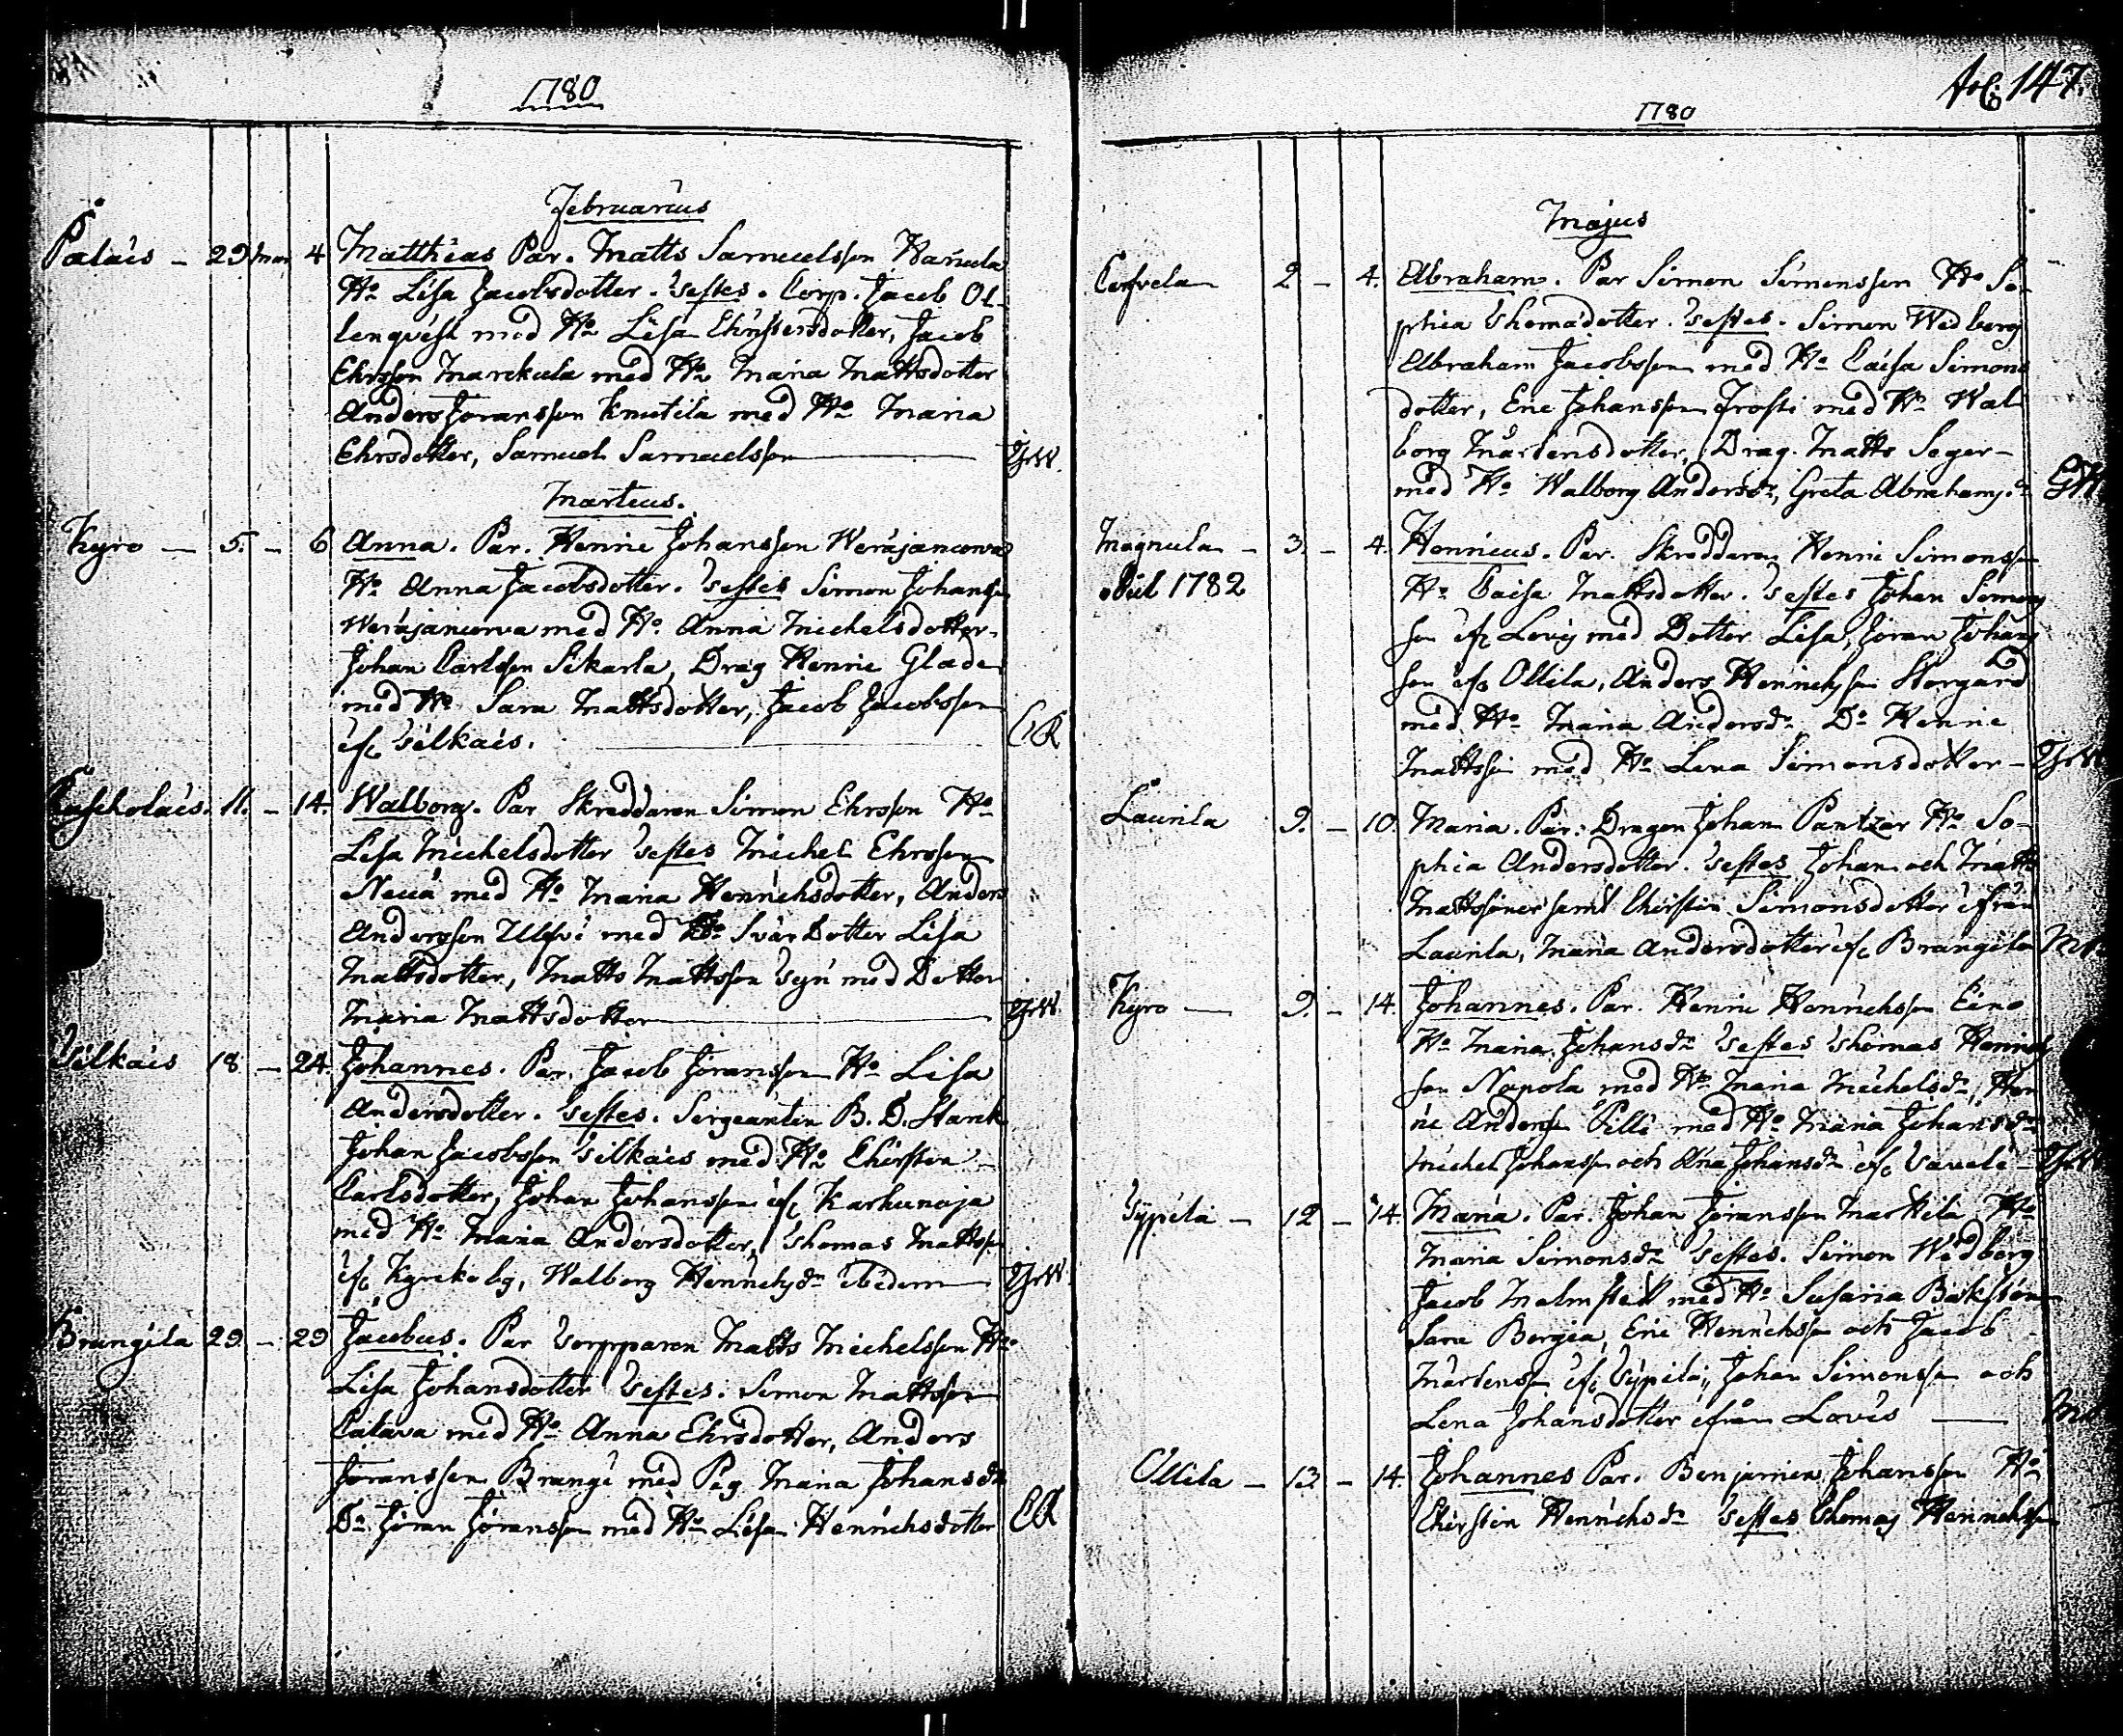 1780
Februarius
Palais - 29 Mar 4 Matthias Par. Matts Samuelsson Hannula
Ho Lisa Jacobsdotter. Testes. Corp. Jacob Ol-
lenqvist med Ho Lisa Christersdotter, Jacob
Ehrsson Marckula med Ho Maria Mattsdotter
Anders Jöransson Knutila med Ho Maria
Ehrsdotter, Samuel Samuelsson
Martius.
Kyro - 5. - 6 Anna. Par. Henric Johansson Weräjäncorva
Ho Anna Jacobsdotter. Testes Simon Johansson
Weräjäncorva med Ho Anna Michelsdotter.
Johan Carlsson Sikarla, Drag Henric Glader
med Ho Sara Mattsdotter, Jacob Jacobsson
ifr Tilkais. CR
11. - 14. Walborg. Par Skräddaren Simon Ehrsson Ho
Lisa Michelsdotter Testes Michel Ehrsson
med Ho Maria Henrichsdotter, Anders
Andersson Ulfvi med Ho Svär Dotter Lisa
Mattsdotter, Matts Mattsson med Dotter
Maria Mattsdotter
Tilkais 18 - 24. Johannes. Par. Jacob Jöransson Ho Lisa
Andersdotter. Testes. Sergeanten B. D. Starck
Johan Jacobsson Tilkais med Ho Chirstin
Carlsdotter, Johan Johansson ifr Karhunoja
med Ho Maria Andersdotter, Thomas Mattsson
ifr Kyrckoby, Walborg Henrichsdr ibidem
Brangila 29. - 29 Jacobus. Par Torpparen Matts Michelsson Ho
Lisa Johansdotter Testes. Simon Mattsson
Catava med Ho Anna Ehrsdotter, Anders
Jöransson Brangi med Pig. Maria Johansdr
Do Jöran Jöransson med Ho Lisa Henrichsdotter CR
Fol: 147.
1780
Majus
2 - 4. Abraham. Par Simon Simonsson Ho So-
phia Thomädotter. Testes. Simon Wedberg
Abraham Jacobsson med Ho Caisa Simons
dotter, Eric Johansson Frosti med Ho Wal
borg Mårtensdotter, Drag. Matts Seger-
med Ho Walborg Andersdr, Greta Abrahamsdr
Magnula - 3. - 4. Henricus. Par. Skräddaren Henric Simonsson
obiit 1782 Ho Caisa Mattsdotter. Testes Johan Simons
son ifr Lovis med Dotter Lisa, Jöran Johans
son ifr Ollila, Anders Henrichsson Storgård
med Ho Maria Andersdr Do Henric
Mattsson med Ho Lena Simonsdotter -
Laurila 9. - 10. Maria. Par. Dragon Johan Pantzar Ho So-
phia Andersdotter. Testes Johan och Matts
Mattssöner samt Chirstin Simonsdotter ifrån
Laurila, Maria Andersdotter ifr Brangila
Kyro - 9. - 14. Johannes. Par. Henric Henrichsson Eino
Ho Maria Johansdr Testes Thomas Henrichs
son Napola med Ho Maria Michelsdr, Hen
ric Anderss Pilli med Ho Maria Johansdr
Michel Johansson och Ana Johansdr ifr
Yypila - 12 - 14. Maria. Par. Johan Jöransson Marttila Ho
Maria Simonsdr Testes. Simon Wedberg
Jacob Malmstedt med Ho Susanna
Sara Bergia, Eric Henrichsson och Jacob
Mårtensson ifr Yypilä, Johan Simonsson och
Lena Johansdotter ifrån Lovis
Ollila - 13. - 14. Johannes Par. Benjamin Johansson Ho
Chirstin Henrichsdr Testes Thomas Henrichsson